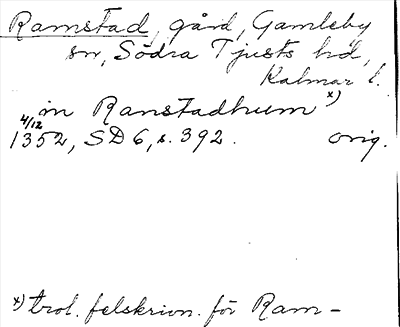 Ramstad, gård, Gamleby
sn, Södra Tjusts hd,
Kalmar l.
in Ranstadhum x)
4/12
1352, SD 6, s. 392. orig.
x) trol. felskrivn. för Ram-